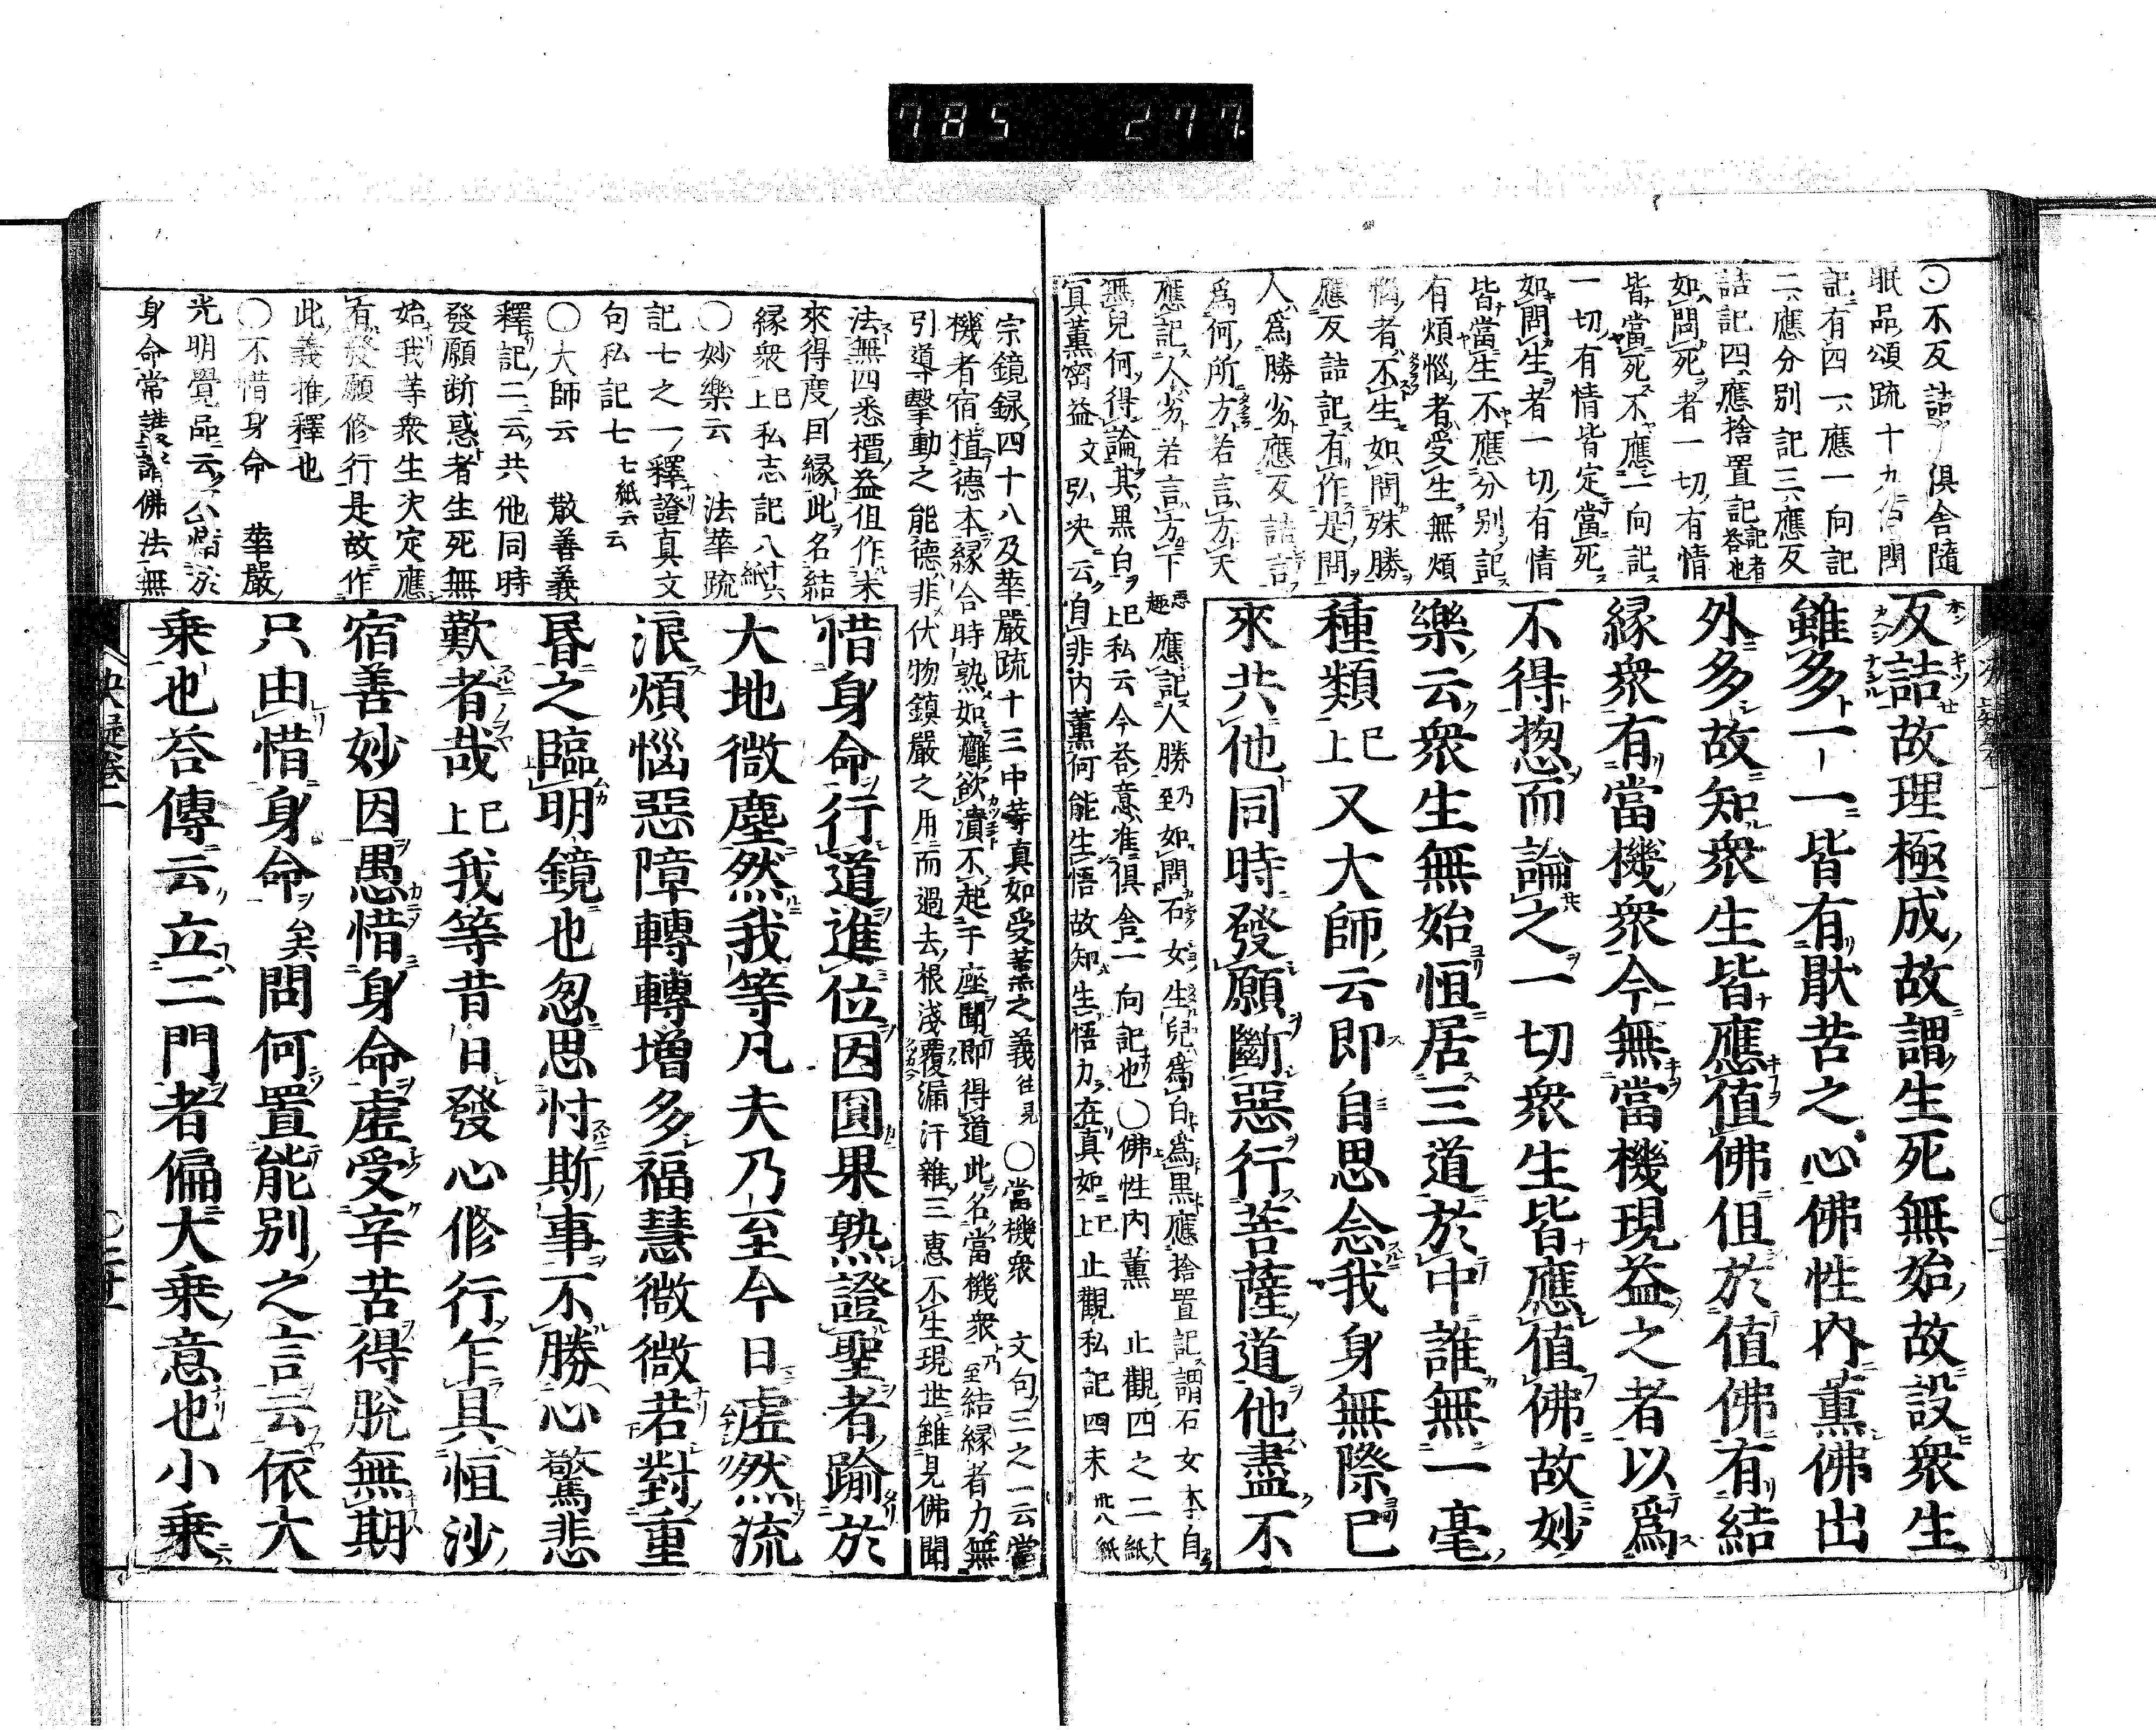 785 277
〇不反詰 倶舎隨
眠品頌疏十九 問
記有四一應一向記
二應分別記三應反
詰記四應捨置記記者答也
如問死者一切有情
皆當死不應一向記
一切有情皆定當死
如問生者一切有情
皆當生不應分別記
有煩惱者受生無煩
惱者不生如問殊勝
應反詰記有作是問
人爲勝劣應反詰言
爲何所方若言方天
應記人劣若言方下
惡趣應記人勝乃至如問石女生兒爲白爲黒應捨置記謂石女本自
無兒何得論其黒白已上私云今答意准倶舎一向記也〇佛性内薫 止觀四之二紙
冥薫密益文弘决云自非内薫何能生悟故知生悟力在真如已上止觀私記四末 紙
反詰故理極成故謂生死無始故設衆生
雖多一一皆有猒苦之心佛性内薫佛出
外多故知衆生皆應値佛但於値佛有結
縁衆有當機衆今無當機現益之者以爲
不得惣而論之一切衆生皆應値佛故妙
樂云衆生無始恒居三道於中誰無一毫
種類已上又大師云即自思念我身無際已
來共他同時發願斷惡行菩薩道他盡不
宗鏡録四十八及華嚴疏十三中等真如受薫之義往見〇當機衆 文句二之一云當
機者宿植德本縁合時熟如癰欲潰不起于座聞即得道此名當機衆乃至結縁者力無
引導擊動之能德非伏物鎮嚴之用而過去根淺覆漏汗雜三惠不生現世雖見佛聞
法無四悉檀益但作未
來得度因縁此名結
縁衆已上私志記八十六紙
〇妙樂云 法華疏
記七之一釋證真文
句私記七七紙云云
〇大師云 散善義
釋記二云共他同時
發願断惑者生死無
始我等衆生决定應
有發願修行是故作
此義推釋也
〇不惜身命 華嚴
光明覺品云不惜於
身命常護諸佛法無
惜身命行道進位因圓果熟證聖者踰於
大地微塵然我等凡夫乃至今日虚然流
浪煩惱惡障轉轉增多福慧微微若對重
昏之臨明鏡也忽思忖斯事不勝心驚悲
歎者哉已上我等昔日發心修行乍具恒沙
宿善妙因愚惜身命虚受辛苦得脫無期
只由惜身命矣問何置能別之言云依大
乗也荅傳云立二門者偏大乗意也小乗
决疑卷一 〇二十一